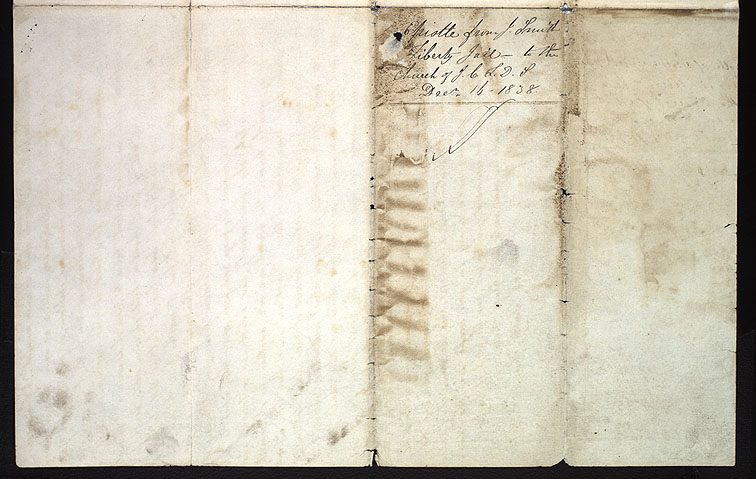 Epistle from J. Smith
Liberty Jail — to the
Church of J. C. L. D. S
Decr. 16 - 1838